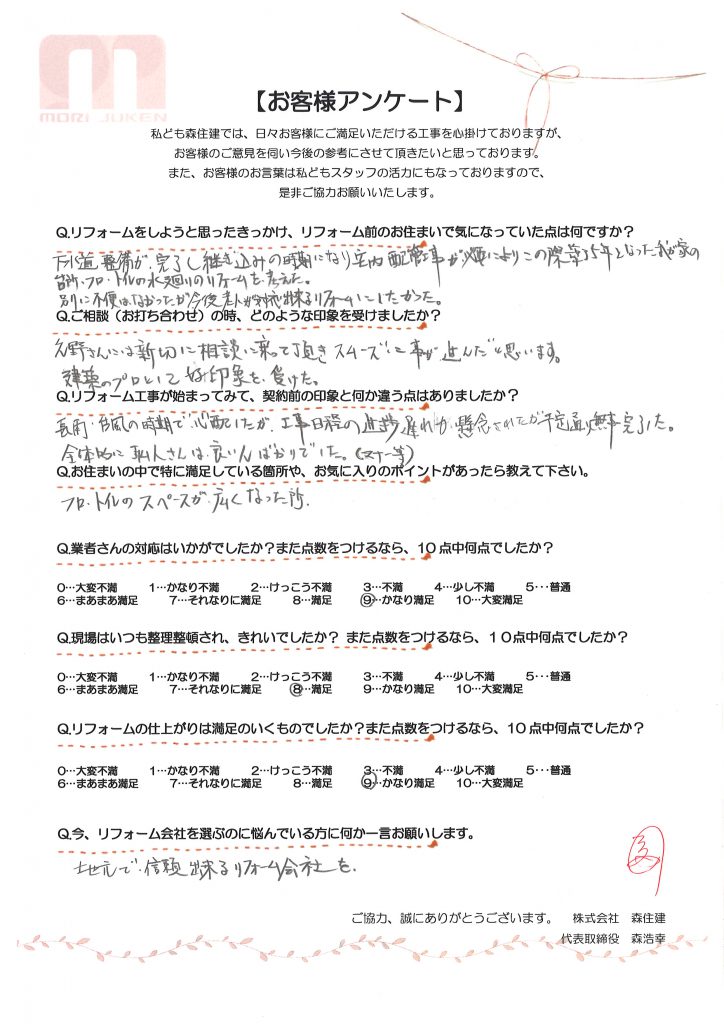 MORI JUKEN
【お客様アンケート】
私ども森住建では、日々お客様にご満足いただける工事を心掛けておりますが、
お客様のご意見を伺い今後の参考にさせて頂きたいと思っております。
また、お客様のお言葉は私どもスタッフの活力にもなっておりますので、
是非ご協力お願いいたします。
Q.リフォームをしようと思ったきっかけ、リフォーム前のお住まいで気になっていた点は何ですか？
下水道整備が完了し継ぎ込みの時期になり宅内配管工事が必要によりこの際築35年となった我が家の
台所・フロ・トイレの水廻りのリフォームを考えた。
別に不便はなかったが今後老人が対応出来るリフォームにしたかった。
Q.ご相談（お打ち合わせ）の時、どのような印象を受けましたか？
久野さんには親切に相談に乗って頂きスムーズに事が進んだと思います。
建築のプロとして好印象を受けた。
Q.リフォーム工事が始まってみて、契約前の印象と何か違う点はありましたか？
長雨・台風の時期で心配したが、工事日程の進捗遅れが懸念されたが予定通り無事完了した。
全体的に職人さんは良い人ばかりでした。(マナー等)
Q.お住まいの中で特に満足している箇所や、お気に入りのポイントがあったら教えて下さい。
フロ・トイレのスペースが広くなった所。
Q.業者さんの対応はいかがでしたか？また点数をつけるなら、１０点中何点でしたか？
0…大変不満　1…かなり不満　2…けっこう不満　3…不満　4…少し不満　5…普通
6…まあまあ満足　7…それなりに満足　8…満足　9…かなり満足　10…大変満足
Q.現場はいつも整理整頓され、きれいでしたか？ また点数をつけるなら、１０点中何点でしたか？
0…大変不満　1…かなり不満　2…けっこう不満　3…不満　4…少し不満　5…普通
6…まあまあ満足　7…それなりに満足　8…満足　9…かなり満足　10…大変満足
Q.リフォームの仕上がりは満足のいくものでしたか？また点数をつけるなら、１０点中何点でしたか？
0…大変不満　1…かなり不満　2…けっこう不満　3…不満　4…少し不満　5…普通
6…まあまあ満足　7…それなりに満足　8…満足　9…かなり満足　10…大変満足
Q.今、リフォーム会社を選ぶのに悩んでいる方に何か一言お願いします。
地元で信頼出来るリフォーム会社を。
ご協力、誠にありがとうございます。　株式会社　森住建
代表取締役　森浩幸